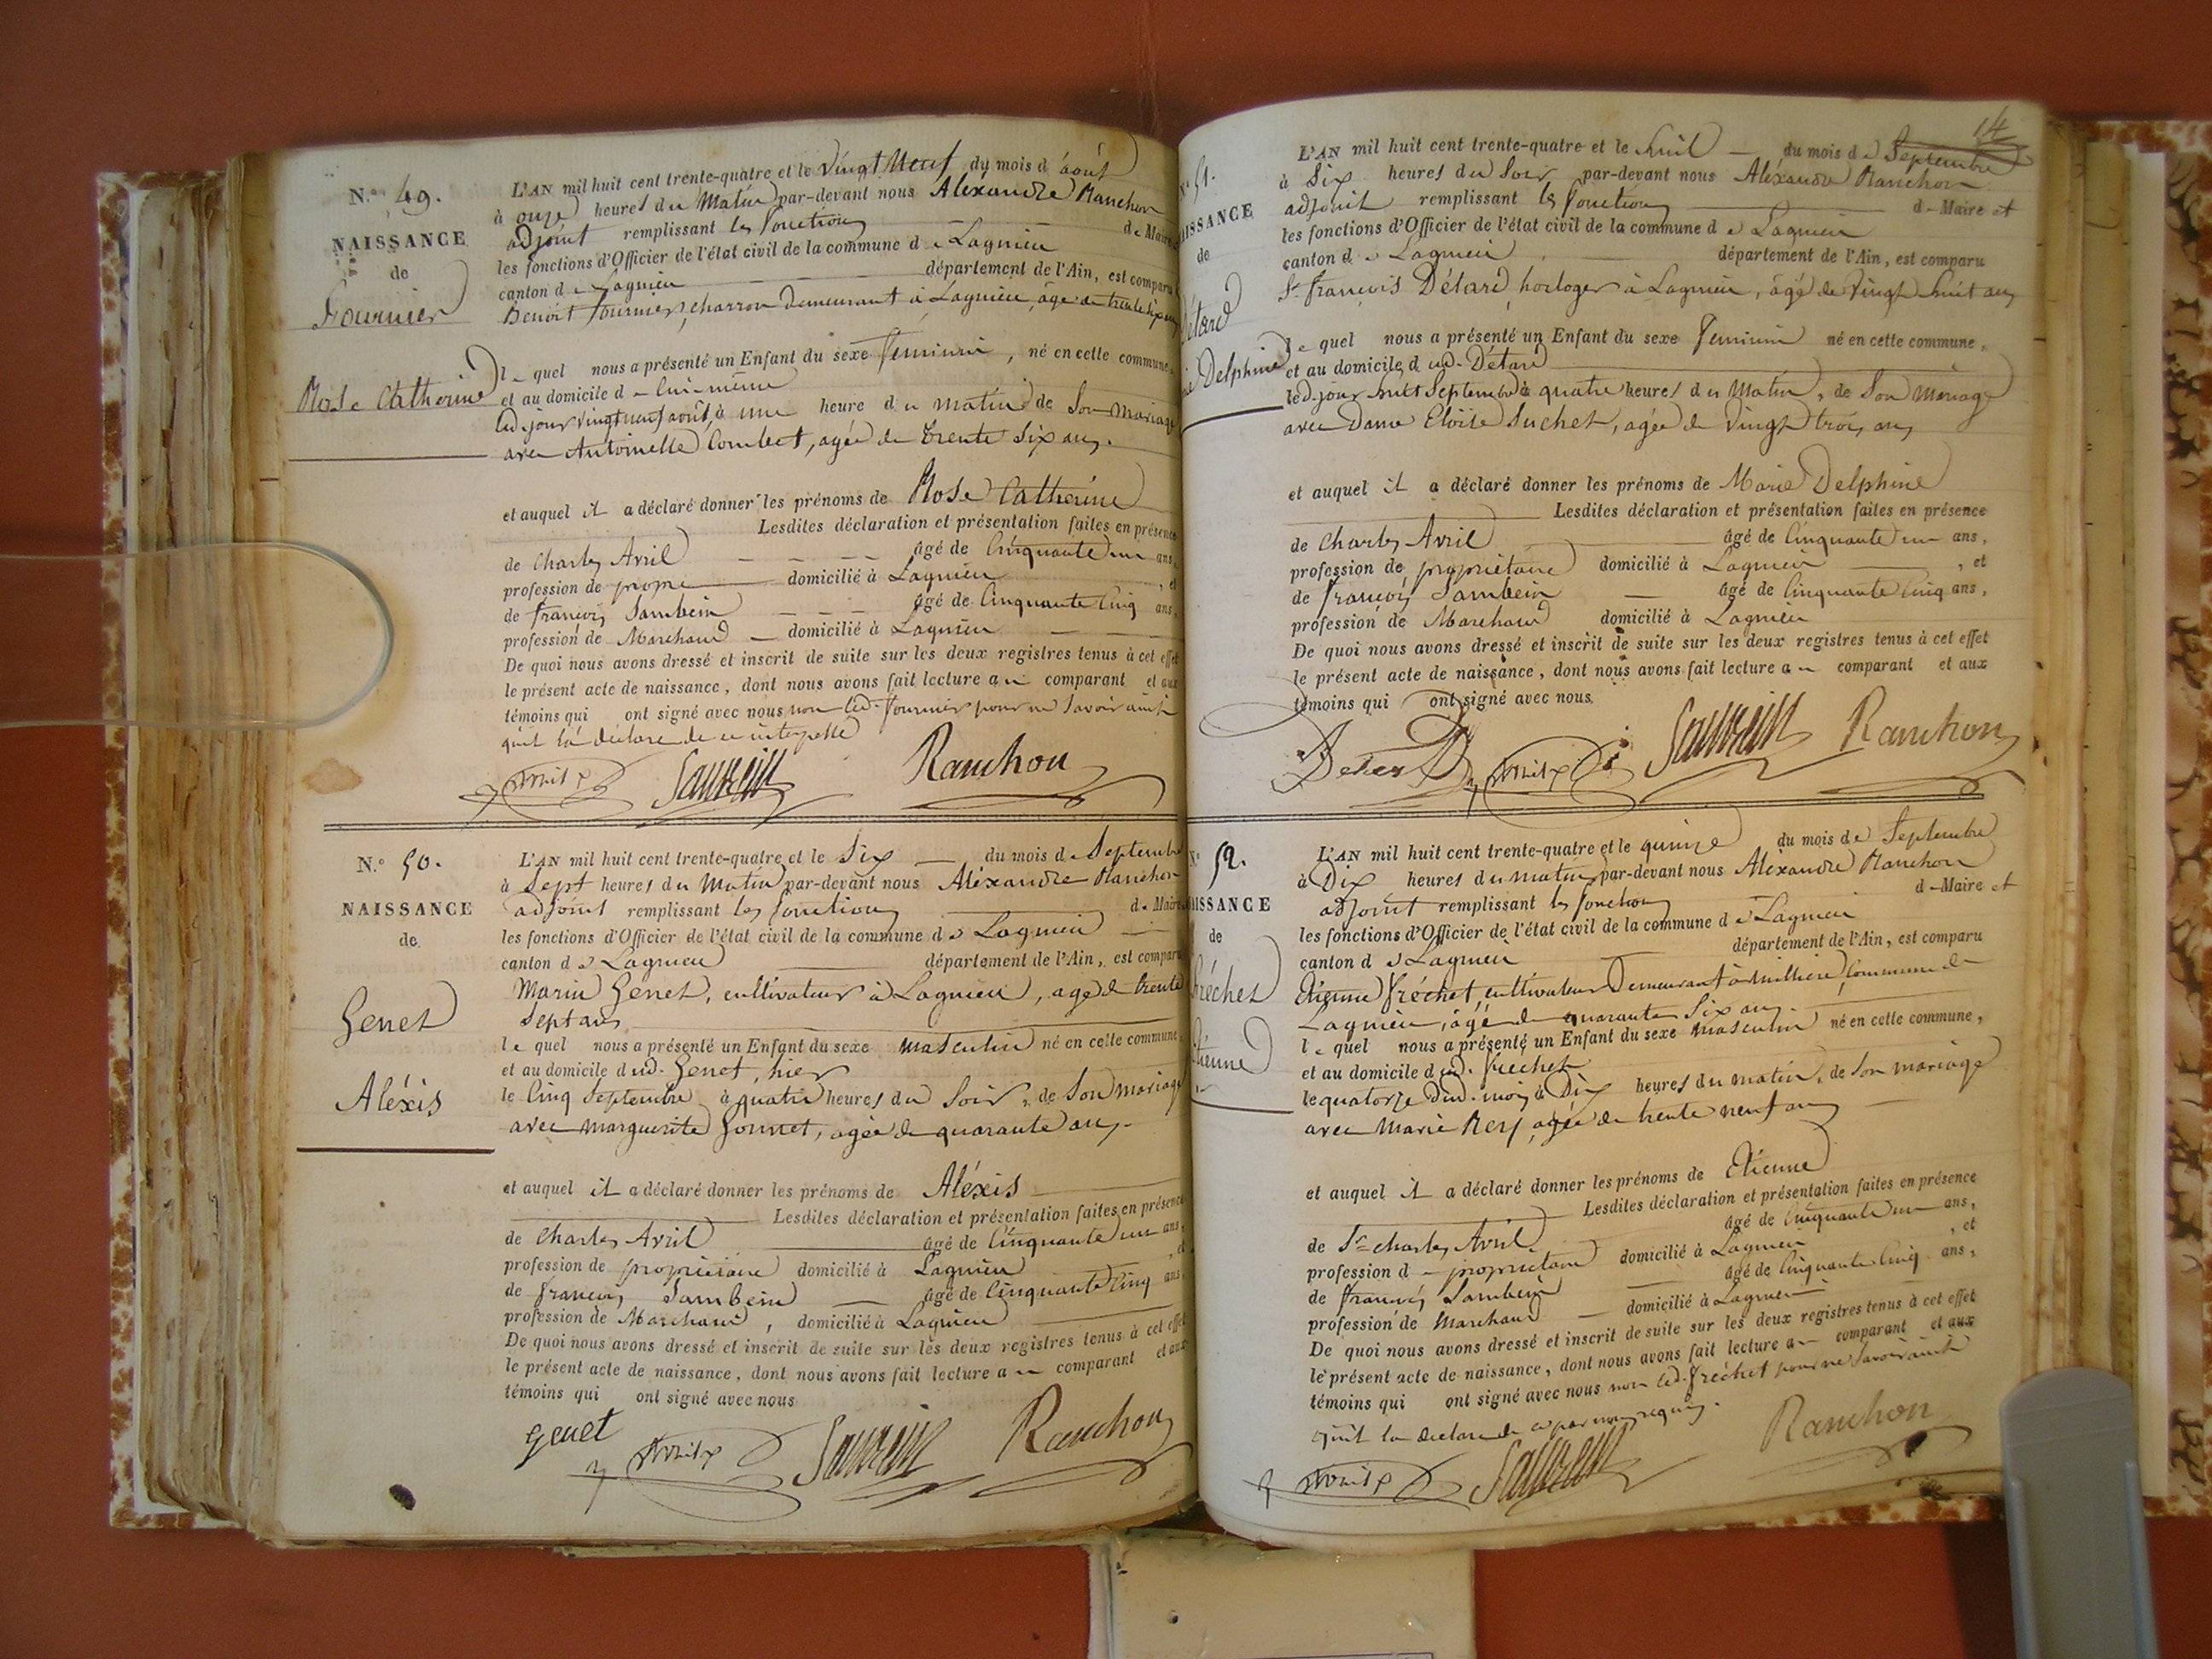 N.º 49.
NAISSANCE
de
Fournier
Rose Catherine
L'AN mil huit cent trente-quatre et le Vingt Neuf du mois d'août
à onze heures du Matin par-devant nous Aléxandre Ranchon
adjoint remplissant les fonctions de Maire
les fonctions d'Officier de l'état civil de la commune de Lagnieu
canton de Lagnieu département de l'Ain, est comparu
Benoit Fournier, charron demeurant à Lagnieu, âgé de trente six ans
le quel nous a présenté un Enfant du sexe feminin, né en cette commune,
et au domicile de lui-même
led. jour vingt neuf août, à une heure du matin de son mariage
avec Antoinette Combet, agée de trente six ans.
et auquel il a déclaré donner les prénoms de Rose Catherine
Lesdites déclaration et présentation faites en présence
de Charles Avril âgé de Cinquante un ans,
profession de propre domicilié à Lagnieu, et
de françois Sambein âgé de Cinquante Cinq ans,
profession de Marchand domicilié à Lagnieu
De quoi nous avons dressé et inscrit de suite sur les deux registres tenus à cet effet
le présent acte de naissance, dont nous avons fait lecture au comparant et aux
témoins qui ont signé avec nous non led. Fournier pour ne savoir ainsi
qu'il l'a déclaré de ce interpellé
Avril Ranchon
N.º 50.
NAISSANCE
de
Genet
Aléxis
L'AN mil huit cent trente-quatre et le Six du mois de Septembre
à Sept heures du Matin par-devant nous Aléxandre Ranchon
adjoint remplissant les fonctions de Maire
les fonctions d'Officier de l'état civil de la commune de Lagnieu
canton de Lagnieu département de l'Ain, est comparu
Marin Genet, cultivateur à Lagnieu, agé de trente
Sept ans
le quel nous a présenté un Enfant du sexe masculin né en cette commune,
et au domicile dud. Genet, hier
le Cinq Septembre à quatre heures du Soir, de Son mariage
avec Marguerite Gonnet, agée de quarante ans.
et auquel il a déclaré donner les prénoms de Aléxis
Lesdites déclaration et présentation faites en présence
de Charles Avril âgé de Cinquante un ans,
profession de propriétaire domicilié à Lagnieu, et
de françois Sambein âgé de Cinquante Cinq ans,
profession de Marchand, domicilié à Lagnieu
De quoi nous avons dressé et inscrit de suite sur les deux registres tenus à cet effet
le présent acte de naissance, dont nous avons fait lecture au comparant et aux
témoins qui ont signé avec nous
genet Avril Ranchon
14
N.º 51.
AISSANCE
de
Détard
Delphine
L'AN mil huit cent trente-quatre et le huit du mois de Septembre
à Six heures du Soir par-devant nous Aléxandre Ranchon
adjoint remplissant les fonctions de Maire et
les fonctions d'Officier de l'état civil de la commune de Lagnieu
canton de Lagnieu département de l'Ain, est comparu
Sr. françois Détard, horloger à Lagnieu, âgé de Vingt huit ans
le quel nous a présenté un Enfant du sexe feminin né en cette commune,
et au domicile dud. Détard
led. jour huit Septembre à quatre heures du Matin, de Son mariage
avec Dame Eloïse Suchet, agée de Vingt trois ans
et auquel il a déclaré donner les prénoms de Marie Delphine
Lesdites déclaration et présentation faites en présence
de Charles Avril âgé de Cinquante un ans,
profession de propriétaire domicilié à Lagnieu, et
de françois Sambein âgé de Cinquante Cinq ans,
profession de Marchand domicilié à Lagnieu
De quoi nous avons dressé et inscrit de suite sur les deux registres tenus à cet effet
le présent acte de naissance, dont nous avons fait lecture au comparant et aux
témoins qui ont signé avec nous.
Avril Ranchon
Nº 52.
AISSANCE
de
Fréchet
Etienne
L'AN mil huit cent trente-quatre et le quinze du mois de Septembre
à Dix heures du matin par-devant nous Aléxandre Ranchon
adjoint remplissant les fonctions de Maire et
les fonctions d'Officier de l'état civil de la commune de Lagnieu
canton de Lagnieu département de l'Ain, est comparu
Etienne Fréchet, cultivateur Demeurant à Commune de
Lagnieu, âgé de quarante Six ans
le quel nous a présenté un Enfant du sexe masculin né en cette commune,
et au domicile dud. frechet
le quatorze dud. mois à Dix heures du matin, de Son mariage
avec Marie Rey, agée de trente neuf ans
et auquel il a déclaré donner les prénoms de Etienne
Lesdites déclaration et présentation faites en présence
de Sr. Charles Avril, âgé de Cinquante un ans,
profession de propriétaire domicilié à Lagnieu, et
de françois Sambein âgé de Cinquante Cinq ans,
profession de Marchand domicilié à Lagnieu
De quoi nous avons dressé et inscrit de suite sur les deux registres tenus à cet effet
le présent acte de naissance, dont nous avons fait lecture au comparant et aux
témoins qui ont signé avec nous non led. fréchet pour ne savoir ainsi
qu'il l'a déclaré de ce par nous requis.
Avril Ranchon